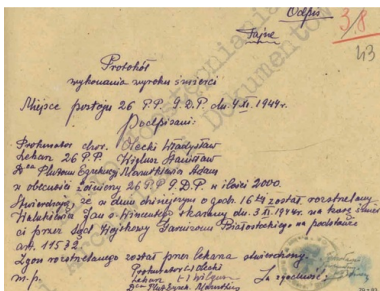 Odpis
Tajne
3/8
43
Protokół
wykonania wyroku śmierci
Miejsce postoju 26 P.P. 9.D.P. dn. 4.XI.1944r.
Podpisani:
Prokurator chor. Olecki Władysław
Lekarz 26 P.P. Stanisław
D-ca Plutonu Egzekucji Adam
w obecności żołnierzy 26 P.P. 9.D.P. w ilości 2000.
Stwierdzają, że w dniu dzisiejszym o godz. 16 został rozstrzelany
Jan s. Wincentego skazany dn. 3.XI.1944r. na karę śmier-
ci przez Sąd Wojskowy Garnizonu Białostockiego na podstawie
art. 115 § 2.
Zgon rozstrzelanego został przez lekarza stwierdzony.
m.p. Prokurator (-) Olecki
Lekarz (-) Za zgodność:
D-ca Plut.